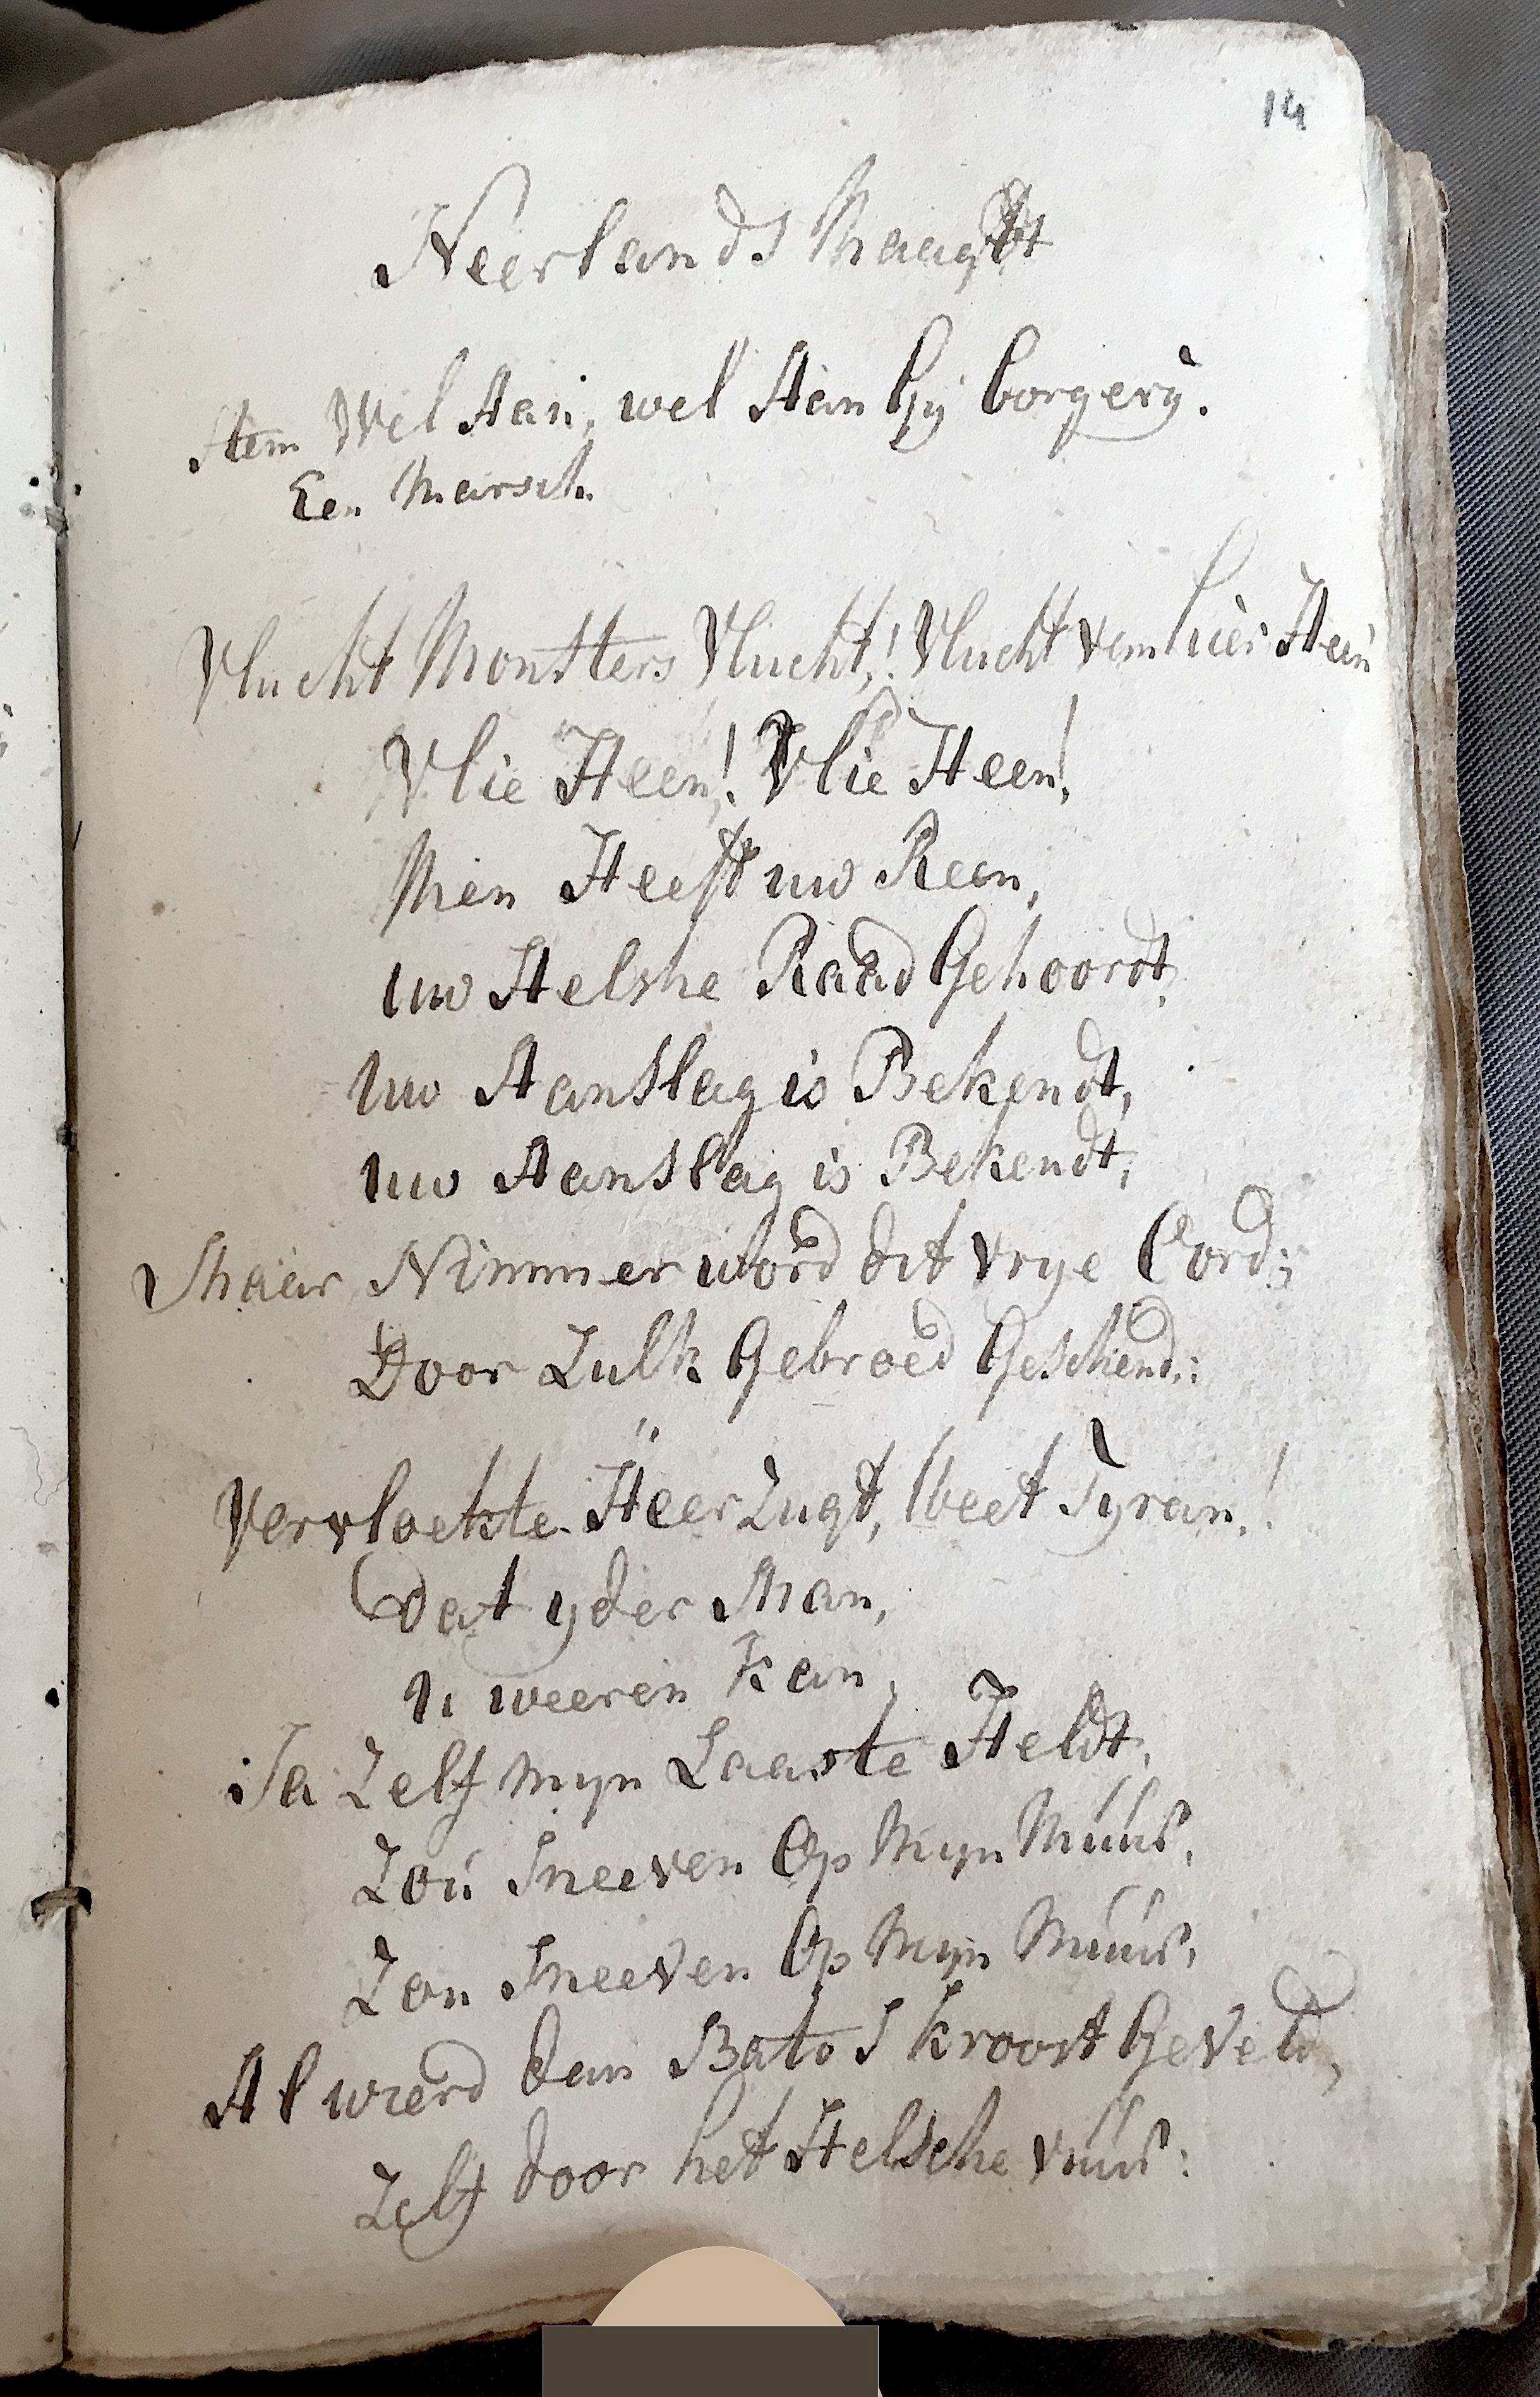 14
Neerlands Maagdt
Stem Wel Aan, wel Aan Gy borgery.
Een Marsch.
Vlucht Monsters Vlucht,! Vlucht van hier Heen
Vlie Heen,! Vlie Heen,!
Men Heeft uw Reen,
uw Helshe Raad Gehoordt,
uw Aanslag is Bekendt,
uw Aanslag is Bekendt,
Maar Nimmer word dit vrye Oord;
Door Zulk Gebroed Geschend:
Vervloekte Heerzugt, weet Tyran,!
Dat yder Man,
U weeren kan,
Ja Zelf myn Laaste Heldt,
Zou Sneeven Op Myn Muur,
Zou Sneeven Op Myn Muur,
Al wierd dan Batos kroost Geveld,
Zelf door het Helsche vuur: